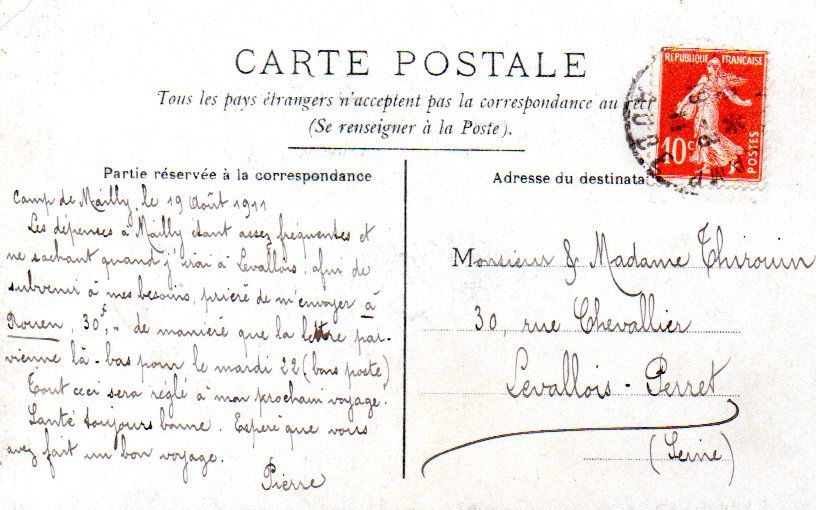 CARTE POSTALE
Tous les pays étrangers n'acceptent pas la correspondance au rec
(Se renseigner à la Poste).
RÉPUBLIQUE FRANÇAISE
10c
POSTES
Partie réservée à la correspondance
Camp de Mailly, le 19 Août 1911
Les dépenses à Mailly étant assez fréquentes et
ne sachant quand j'irai à Levallois, afin de
subvenir à mes besoins, prière de m'envoyer à
Rouen, 30f,, de manière que la lettre par-
vienne là-bas pour le mardi 22 (bons poste)
Tout ceci sera réglé à mon prochain voyage.
Santé toujours bonne. Espère que vous
avez fait un bon voyage.
Pierre
Adresse du destinata
Monsieur & Madame Thirouin
30, rue Chevallier
Levallois-Perret
(Seine)